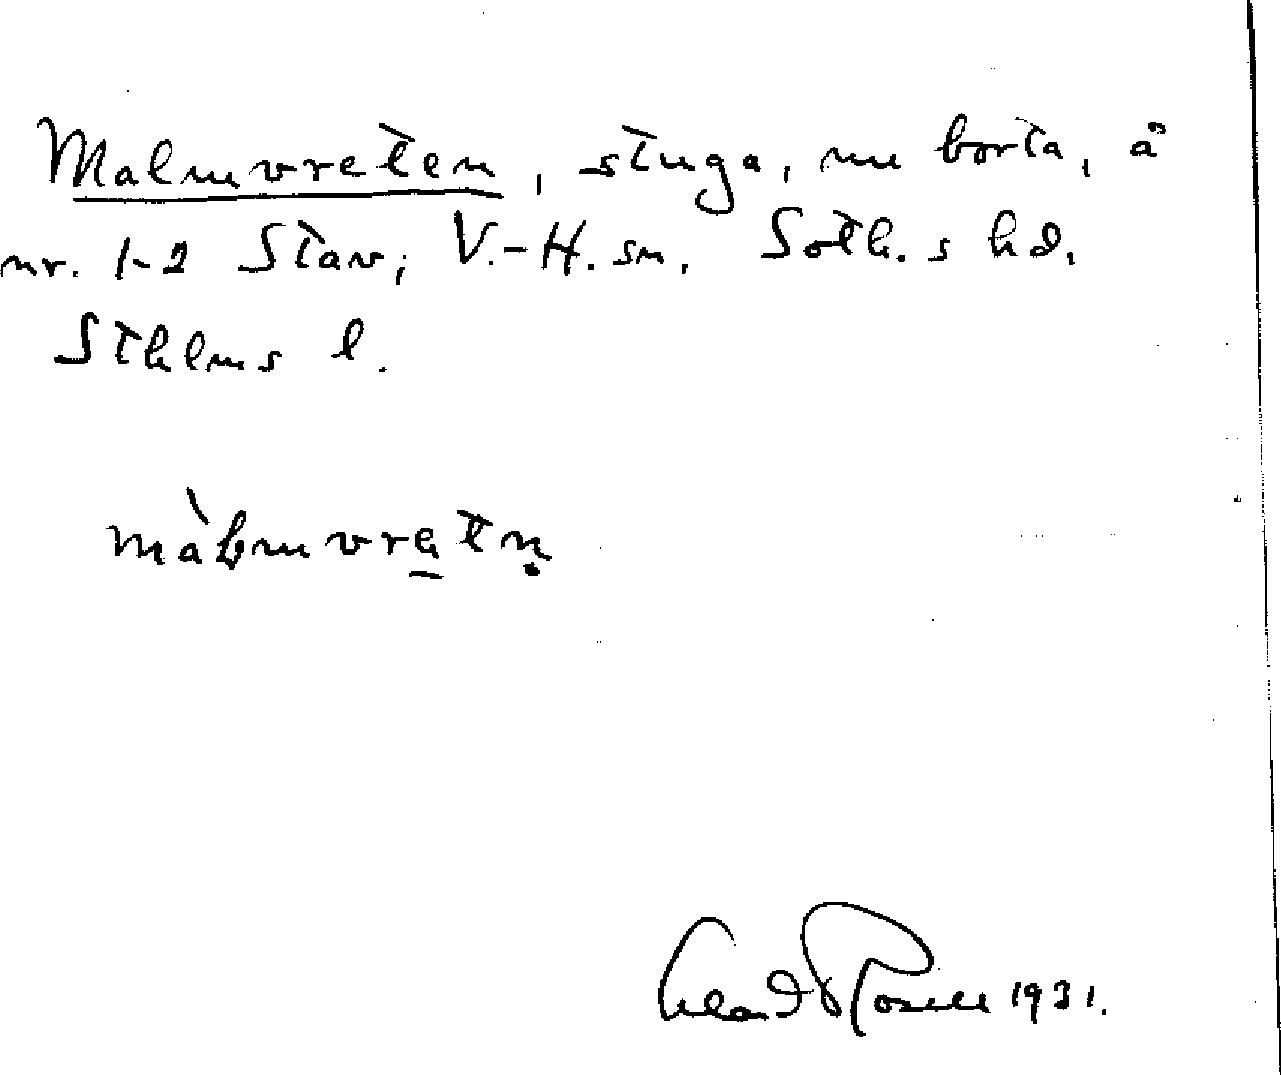 Malmvreten, stuga, nu borta, å
nr. 1-2 Stav, V.-H. sn. Soth. s hd.
Sthlms l.
Rosell 1931.